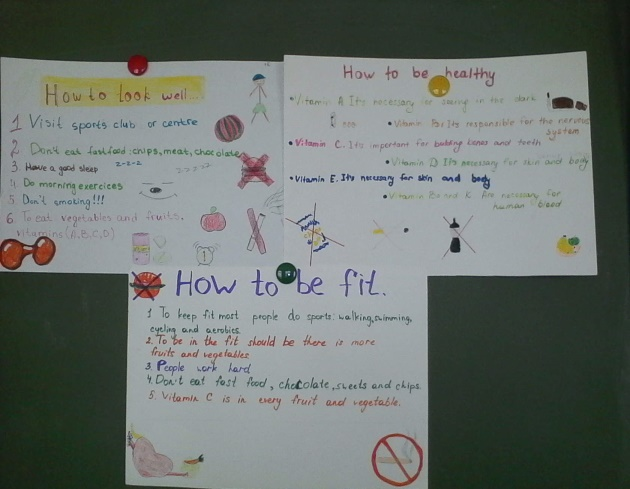 How to look well...
1 Visit sports club or centre
2. Don't eat fastfood: chips, meat, chocolate
3. Have a good sleep
z-z-z-z
4. Do morning exercices
5. Don't smoking!!!
6. To eat vegetables and fruits.
vitamins (A,B,C,D)
How to be healthy
• Vitamin A It's necessary for seeing in the dark
• Vitamin B1 It's responsible for the nervous
system
• Vitamin C. It's important for building bones and teeth
• Vitamin D It's necessary for skin and body
• Vitamin E. It's necessary for skin and body
• Vitamin B12 and K. Are necessary for
human blood
How to be fit.
1 To keep fit most people do sports: walking, swimming,
cycling and aerobics.
2. To be in the fit should be there is more
fruits and vegetables
3. People work hard
4. Don't eat fast food, chocolate, sweets and chips.
5. Vitamin C is in every fruit and vegetable.